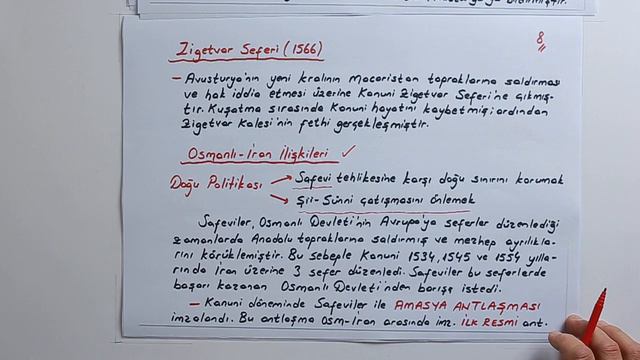 Zigetvar Seferi (1566)
8
– Avusturya'nın yeni kralının Macaristan topraklarına saldırması
ve hak iddia etmesi üzerine Kanuni Zigetvar Seferi'ne çıkmış-
tır. Kuşatma sırasında Kanuni hayatını kaybetmiş; ardından
Zigetvar Kalesi'nin fethi gerçekleşmiştir.
Osmanlı-İran İlişkileri ✓
Doğu Politikası → Safevi tehlikesine karşı doğu sınırını korumak
→ Şii-Sünni çatışmasını önlemek
Safeviler, Osmanlı Devleti'nin Avrupa'ya seferler düzenlediği
zamanlarda Anadolu topraklarına saldırmış ve mezhep ayrılıkla-
rını körüklemiştir. Bu sebeple Kanuni 1534, 1545 ve 1554 yılla-
rında İran üzerine 3 sefer düzenledi. Safeviler bu seferlerde
başarı kazanan Osmanlı Devleti'nden barış istedi.
– Kanuni döneminde Safeviler ile AMASYA ANTLAŞMASI
imzalandı. Bu antlaşma Osm-İran arasında imz. İLK RESMİ ant.